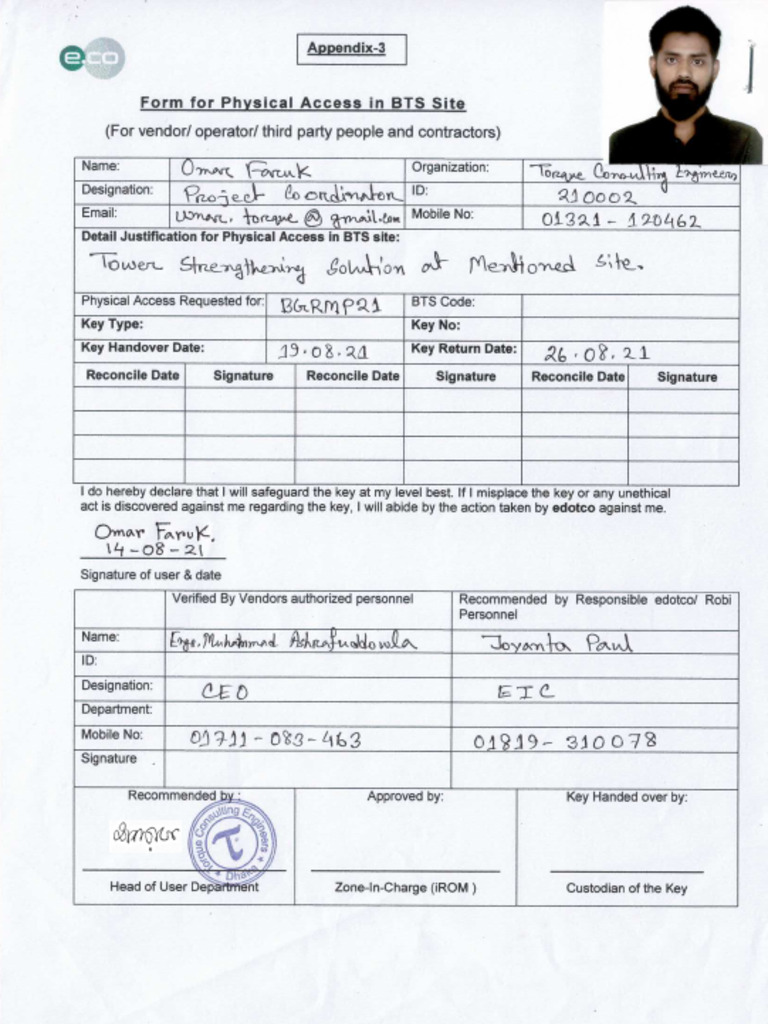 e.co
Appendix-3
Form for Physical Access in BTS Site
(For vendor/ operator/ third party people and contractors)
Name: Omar Faruk Organization: Torque Consulting Engineers
Designation: Project Coordinator ID: 210002
Email: umar.torque@gmail.com Mobile No: 01321-120462
Detail Justification for Physical Access in BTS site:
Tower Strengthening Solution at Mentioned Site.
Physical Access Requested for: BGRMP21 BTS Code:
Key Type: Key No:
Key Handover Date: 19.08.21 Key Return Date: 26.08.21
Reconcile Date Signature Reconcile Date Signature Reconcile Date Signature
I do hereby declare that I will safeguard the key at my level best. If I misplace the key or any unethical
act is discovered against me regarding the key, I will abide by the action taken by edotco against me.
Omar Faruk.
14-08-21
Signature of user & date
Verified By Vendors authorized personnel Recommended by Responsible edotco/ Robi
Personnel
Name: Engr. Muhammad Ashrafuddowla Joyanta Paul
ID:
Designation: CEO EIC
Department:
Mobile No: 01711-083-463 01819-310078
Signature
Recommended by: Approved by: Key Handed over by:
Torque Consulting Engineers
Dhaka
Head of User Department Zone-In-Charge (iROM ) Custodian of the Key